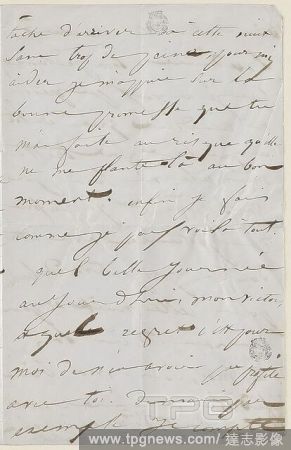 tâche d'arriver à cette
sans trop de peine pour m'y
aider je m'appuie sur la
bonne promesse que tu
m'as faite au risque qu'elle
ne me plante là au bon
moment. enfin je fais
comme je peux voilà tout.
quelle belle journée
aujourd'hui, mon Victor,
et quel regret c'est pour
moi de n'en avoir pas profité
avec toi.
exemple je compte
TPG
www.tpgnews.com / 達志影像